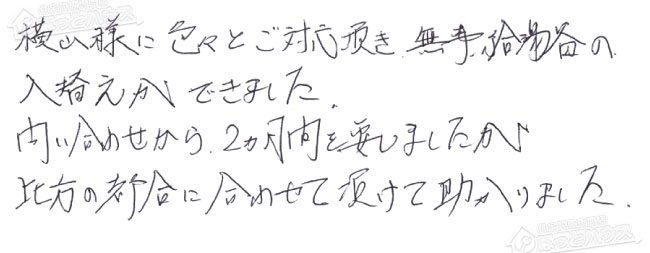 横山様に色々とご対応頂き、無事、給湯器の
入替えができました。
問い合わせから、2ヵ月間を要しましたが
此方の都合に合わせて頂けて助かりました。